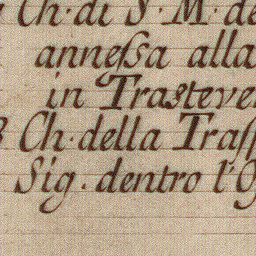 Ch. di S. M. de
anneſsa alla
in Trasteve
Ch. della Traſ
Sig. dentro l'O